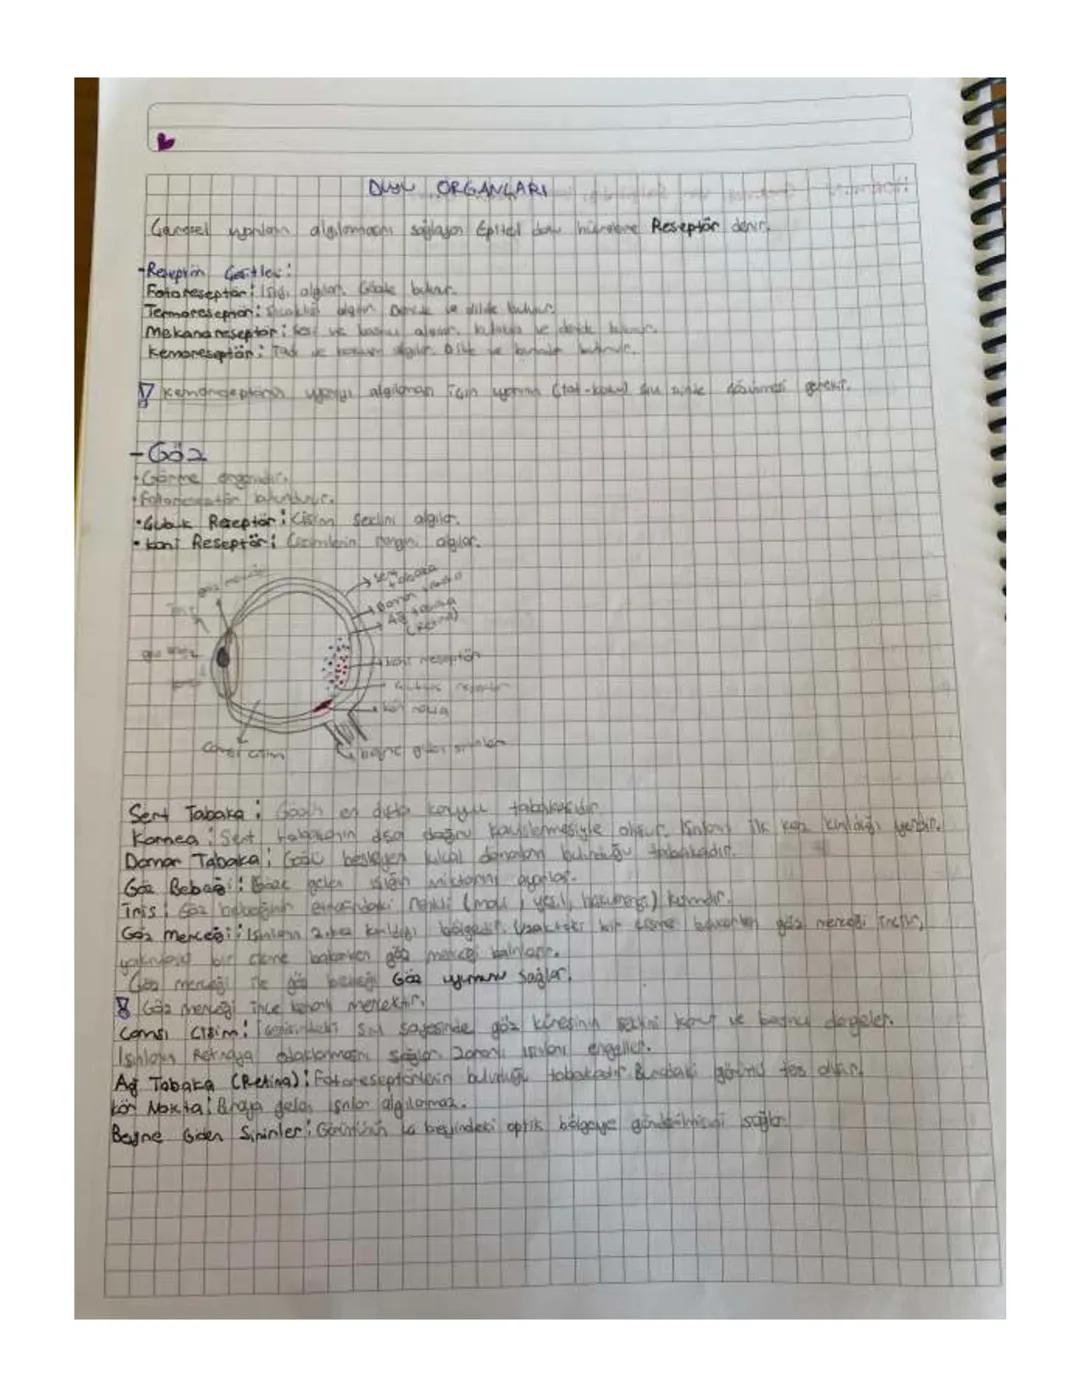 DUYU ORGANLARI
Çevresel uyarıların algılanmasını sağlayan Epitel duyu hücrelerine Reseptör denir.
-Reseptör Çeşitleri:
Fotoreseptör: Işığı algılar. Gözde bulunur.
Termoreseptör: Sıcaklığı algılar. Deride ve dilde bulunur.
Mekanoreseptör: Ses ve basıncı algılar. kulakta ve deride bulunur.
Kemoreseptör: Tad ve algılar. Dilde ve burunda bulunur.
! Kemoreseptörün uyarıyı algılaması için uyarının (tat-koku) sıvı içinde çözünmesi gerekir.
-Göz
• Görme organıdır.
• Fotoreseptör bulundurur.
• Çubuk Reseptör: Cismin şeklini algılar.
• koni Reseptör: Cisimlerin rengini algılar.
göz merceği
İris
göz bebeği
kornea
camsı cisim
sert tabaka
Damar tabaka
Ağ tabaka (Retina)
koni reseptör
Çubuk reseptör
kör nokta
beyne giden sinirler
Sert Tabaka: Gözün en dışta koruyucu tabakasıdır.
Kornea: Sert tabakanın dışa doğru kavislenmesiyle oluşur. Işınların ilk kez kırıldığı yerdir.
Damar Tabaka: Gözü besleyen kılcal damarların bulunduğu tabakadır.
Göz Bebeği: Göze gelen ışığın miktarını ayarlar.
İris: Göz bebeğinin etrafındaki renkli (mavi, yeşil, kahverengi) kısımdır.
Göz Merceği: Işınların 2.kez kırıldığı bölgedir. Uzaktaki bir cisme bakarken göz merceği incelir,
yakındaki bir cisme bakarken göz merceği kalınlaşır.
Göz merceği ile göz bebeği Göz uyumunu sağlar.
! Göz merceği ince kenarlı mercektir.
Camsı Cisim: İçerisindeki sıvı sayesinde göz küresinin şeklini korur ve basıncı dengeler.
Işınların Retinaya odaklanmasını sağlar. Zararlı ışınları engeller.
Ağ Tabaka (Retina): Fotoreseptörlerin bulunduğu tabakadır. Buradaki görüntü ters olur.
Kör Nokta: Buraya gelen ışınlar algılamaz.
Beyne Giden Sinirler: Görüntünün beyindeki optik bölgeye gönderilmesini sağlar.